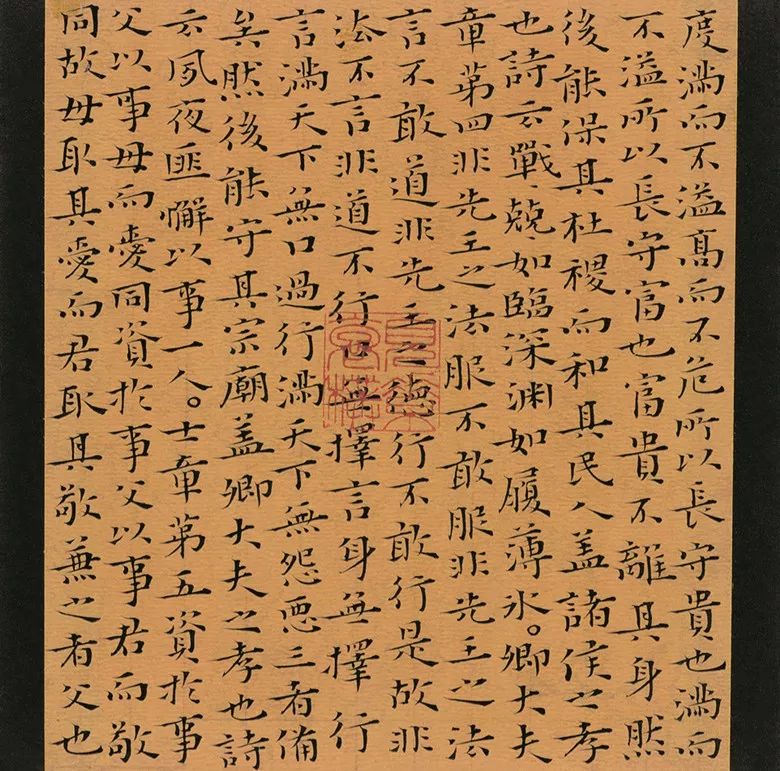 度滿而不溢高而不危所以長守貴也滿而
不溢所以長守富也富貴不離其身然
後能保其社稷而和其民人盖諸侯之孝
也詩云戰〻兢〻如臨深淵如履薄氷。卿大夫
章第四非先王之法服不敢服非先王之法
言不敢道非先王之德行不敢行是故非
法不言非道不行口無擇言身無擇行
言滿天下無口過行滿天下無怨惡三者備
矣然後能守其宗廟盖卿大夫之孝也詩
云夙夜匪懈以事一人。士章第五資於事
父以事母而愛同資於事父以事君而敬
同故母取其愛而君取其敬兼之者父也